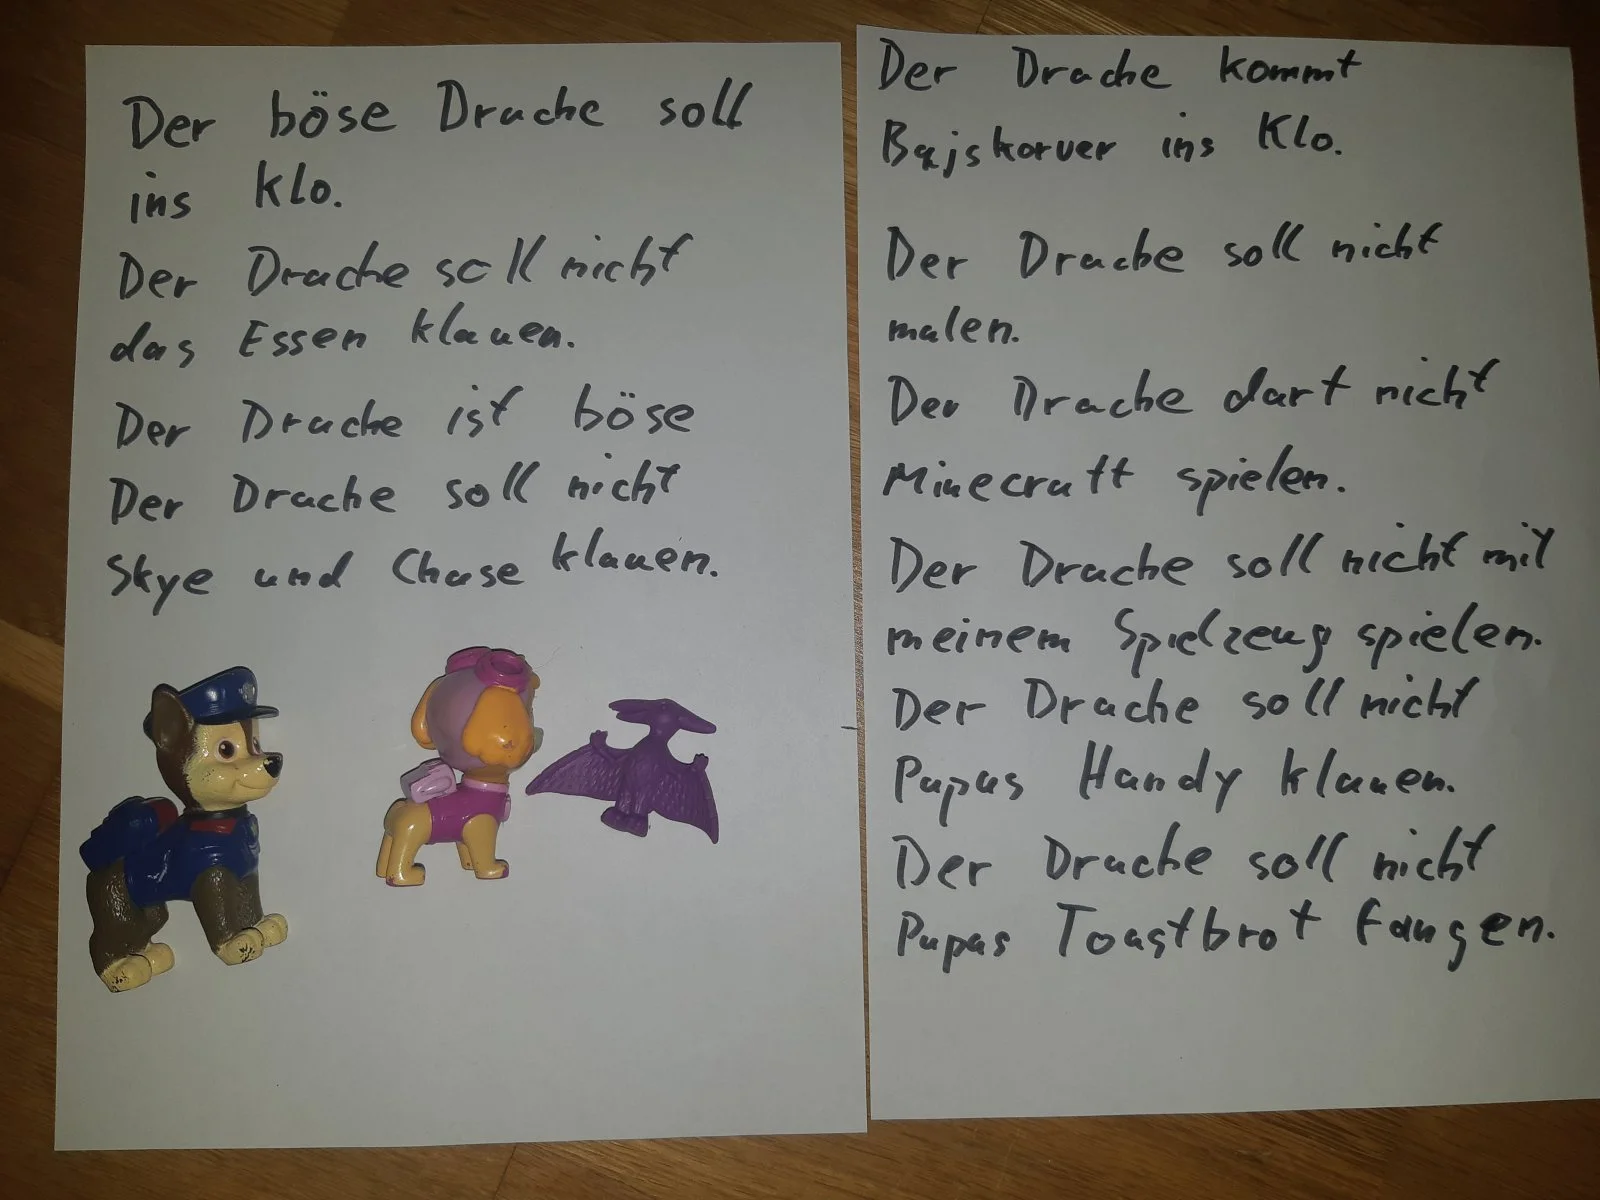 Der böse Drache soll
ins Klo.
Der Drache soll nicht
das Essen klauen.
Der Drache ist böse
Der Drache soll nicht
Skye und Chase klauen.
Der Drache kommt
Bajskorver ins Klo.
Der Drache soll nicht
malen.
Der Drache darf nicht
Minecraft spielen.
Der Drache soll nicht mit
meinem Spielzeug spielen.
Der Drache soll nicht
Papas Handy klauen.
Der Drache soll nicht
Papas Toastbrot fangen.